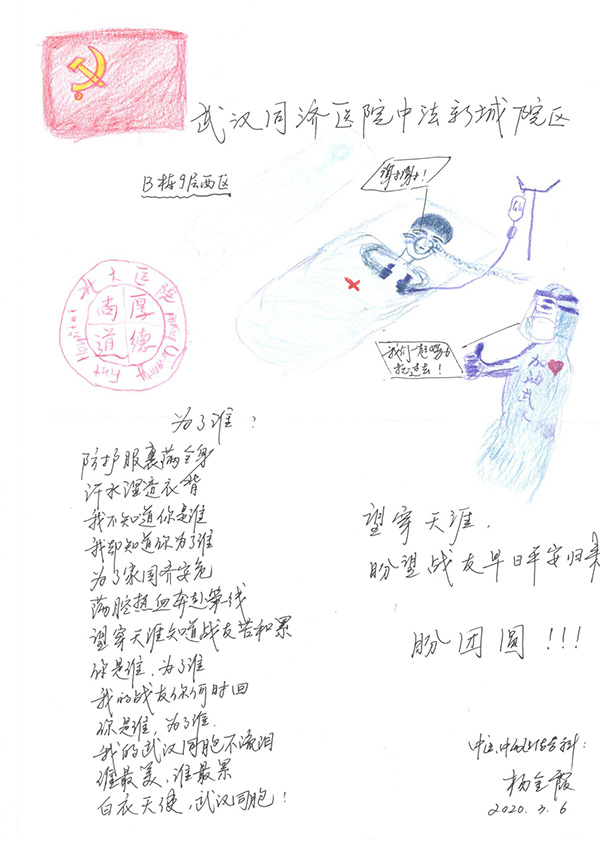 武汉同济医院中法新城院区
B栋9层西区
谢谢!
北大医院
Peking University Hospital
厚德
尚道
我们一起
挺过去!
加油武汉
为了谁?
防护服裹满全身
汗水湿透衣背
我不知道你是谁
我却知道你为了谁
为了家国齐安危
满腔热血奔赴第一线
望穿天涯知道战友苦和累
你是谁,为了谁
我的战友你何时回
你是谁,为了谁.
我的武汉同胞不流泪
谁最美,谁最累
白衣天使,武汉同胞!
望穿天涯.
盼望战友早日平安归来
盼团圆!!!
中医、中西医结合科:
杨金霞
2020.3.6